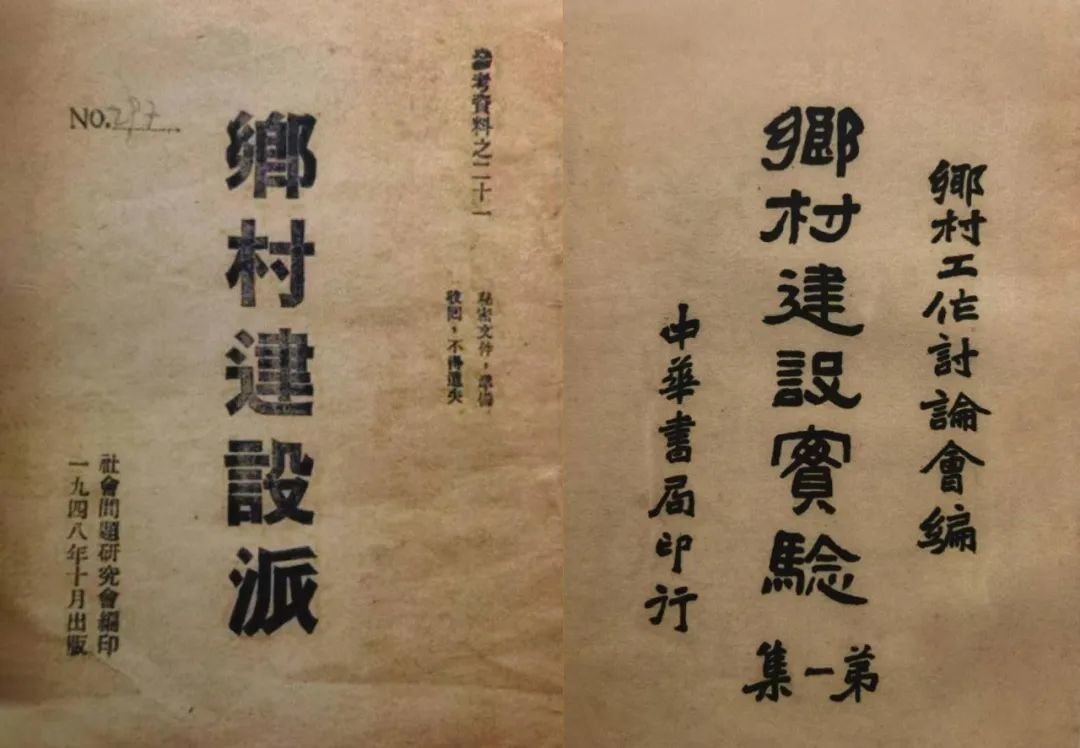 參考資料之二十一
秘密文件，準備
收回，不得遺失
鄉村建設派
NO.297
社會問題研究會編印
一九四八年十月出版
鄉村工作討論會編
鄉村建設實驗
第一集
中華書局印行